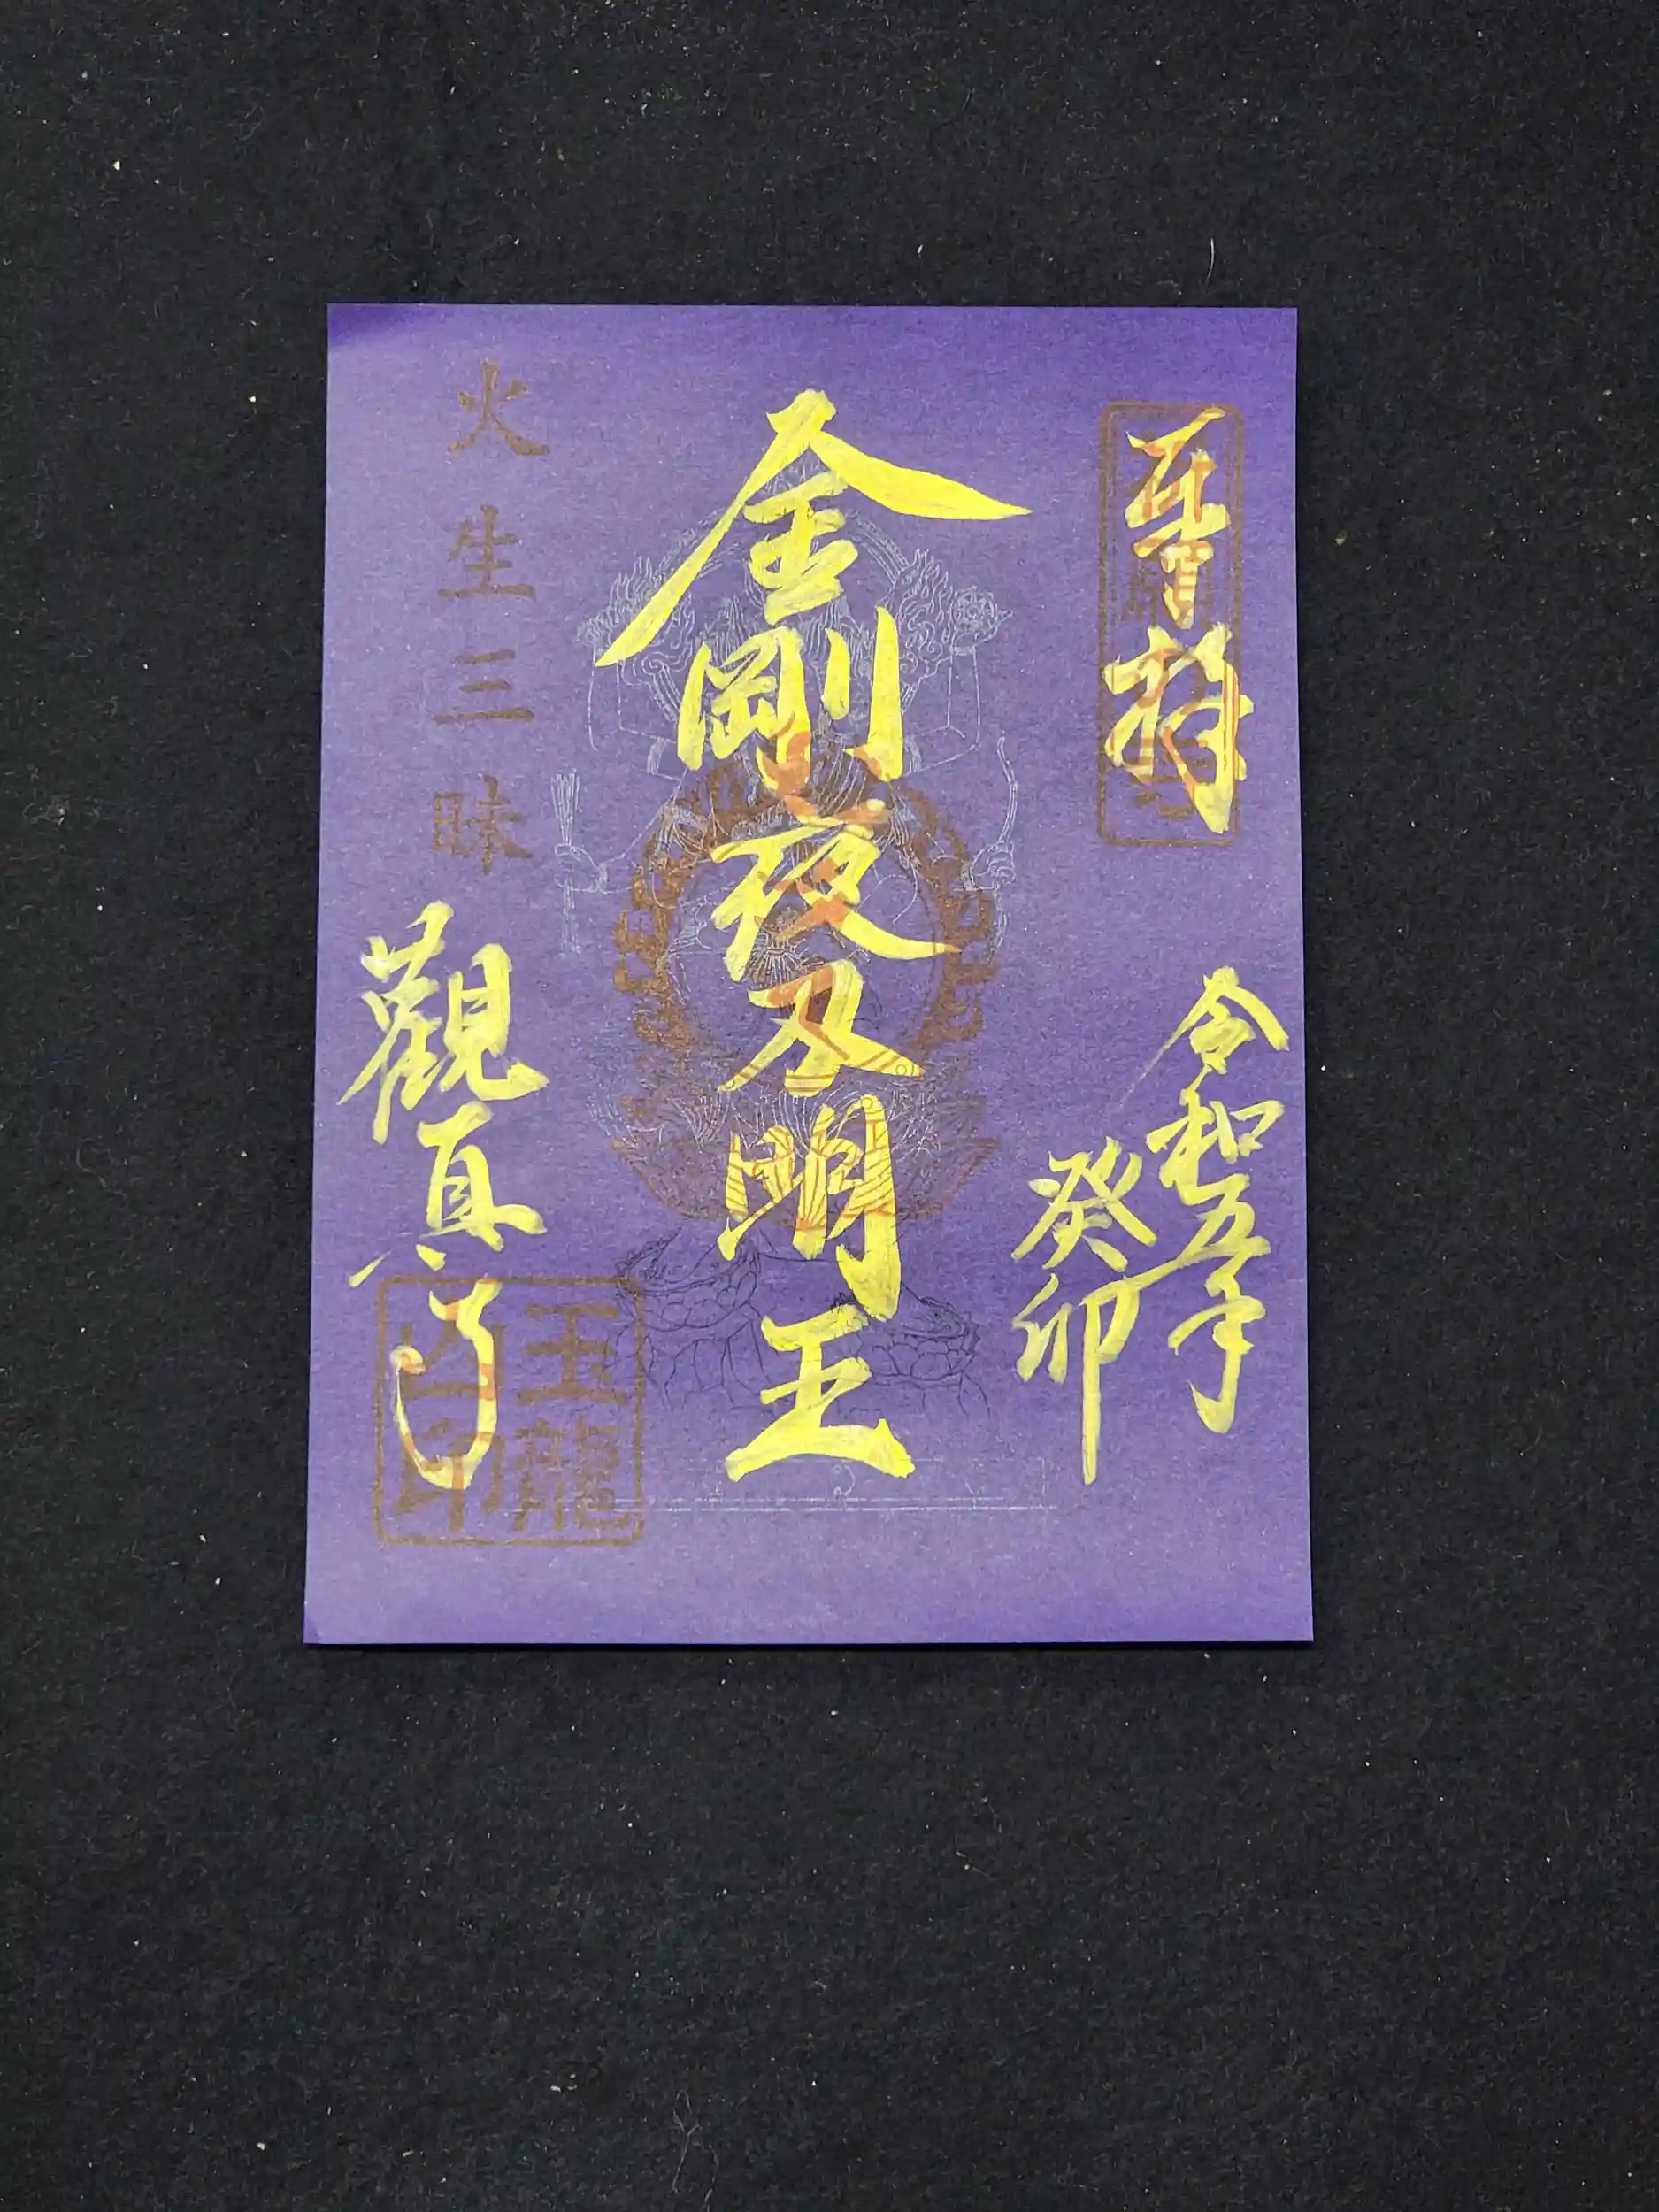 奉拝
令和五年
癸卯
金剛夜叉明王
火生三昧
觀真寺
玉龍山印